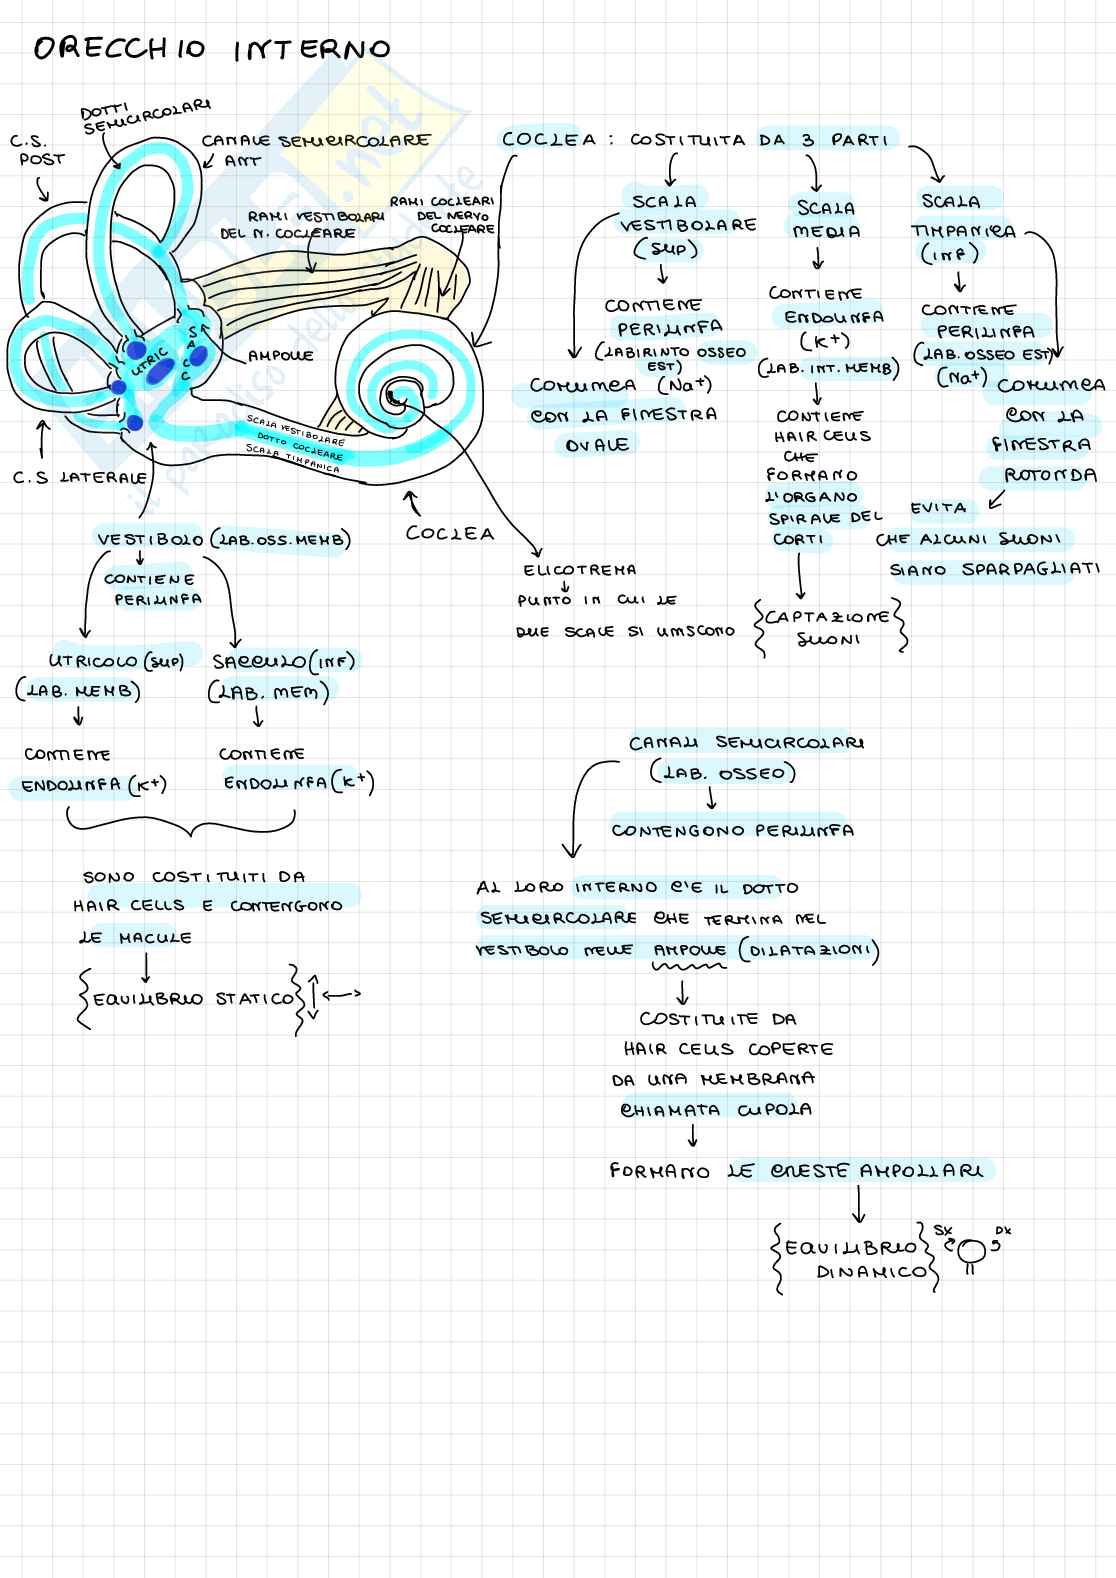 ORECCHIO INTERNO
DOTTI
SEMICIRCOLARI
C.S.
POST
CANALE SEMICIRCOLARE
ANT
RAMI VESTIBOLARI
DEL N. COCLEARE
RAMI COCLEARI
DEL NERVO
COCLEARE
UTRIC
SACC
AMPOLLE
SCALA VESTIBOLARE
DOTTO COCLEARE
SCALA TIMPANICA
C.S LATERALE
COCLEA
VESTIBOLO (LAB.OSS.MEMB)
CONTIENE
PERILINFA
UTRICOLO (SUP)
(LAB. MEMB)
CONTIENE
ENDOLINFA (K+)
SACCULO (INF)
(LAB. MEM)
CONTIENE
ENDOLINFA (K+)
SONO COSTITUITI DA
HAIR CELLS E CONTENGONO
LE MACULE
EQUILIBRIO STATICO
ELICOTREMA
PUNTO IN CUI LE
DUE SCALE SI UNISCONO
COCLEA : COSTITUITA DA 3 PARTI
SCALA
VESTIBOLARE
(SUP)
CONTIENE
PERILINFA
(LABIRINTO OSSEO
EST)
(Na+)
COMUNICA
CON LA FINESTRA
OVALE
SCALA
MEDIA
CONTIENE
ENDOLINFA
(K+)
(LAB. INT. MEMB)
CONTIENE
HAIR CELLS
CHE
FORMANO
L'ORGANO
SPIRALE DEL
CORTI
CAPTAZIONE
SUONI
SCALA
TIMPANICA
(INF)
CONTIENE
PERILINFA
(LAB. OSSEO EST)
(Na+)
COMUNICA
CON LA
FINESTRA
ROTONDA
EVITA
CHE ALCUNI SUONI
SIANO SPARPAGLIATI
CANALI SEMICIRCOLARI
(LAB. OSSEO)
CONTENGONO PERILINFA
AL LORO INTERNO C'E IL DOTTO
SEMICIRCOLARE CHE TERMINA NEL
VESTIBOLO NELLE AMPOLLE (DILATAZIONI)
COSTITUITE DA
HAIR CELLS COPERTE
DA UNA MEMBRANA
CHIAMATA CUPOLA
FORMANO LE CRESTE AMPOLLARI
EQUILIBRIO
DINAMICO
SX
DX